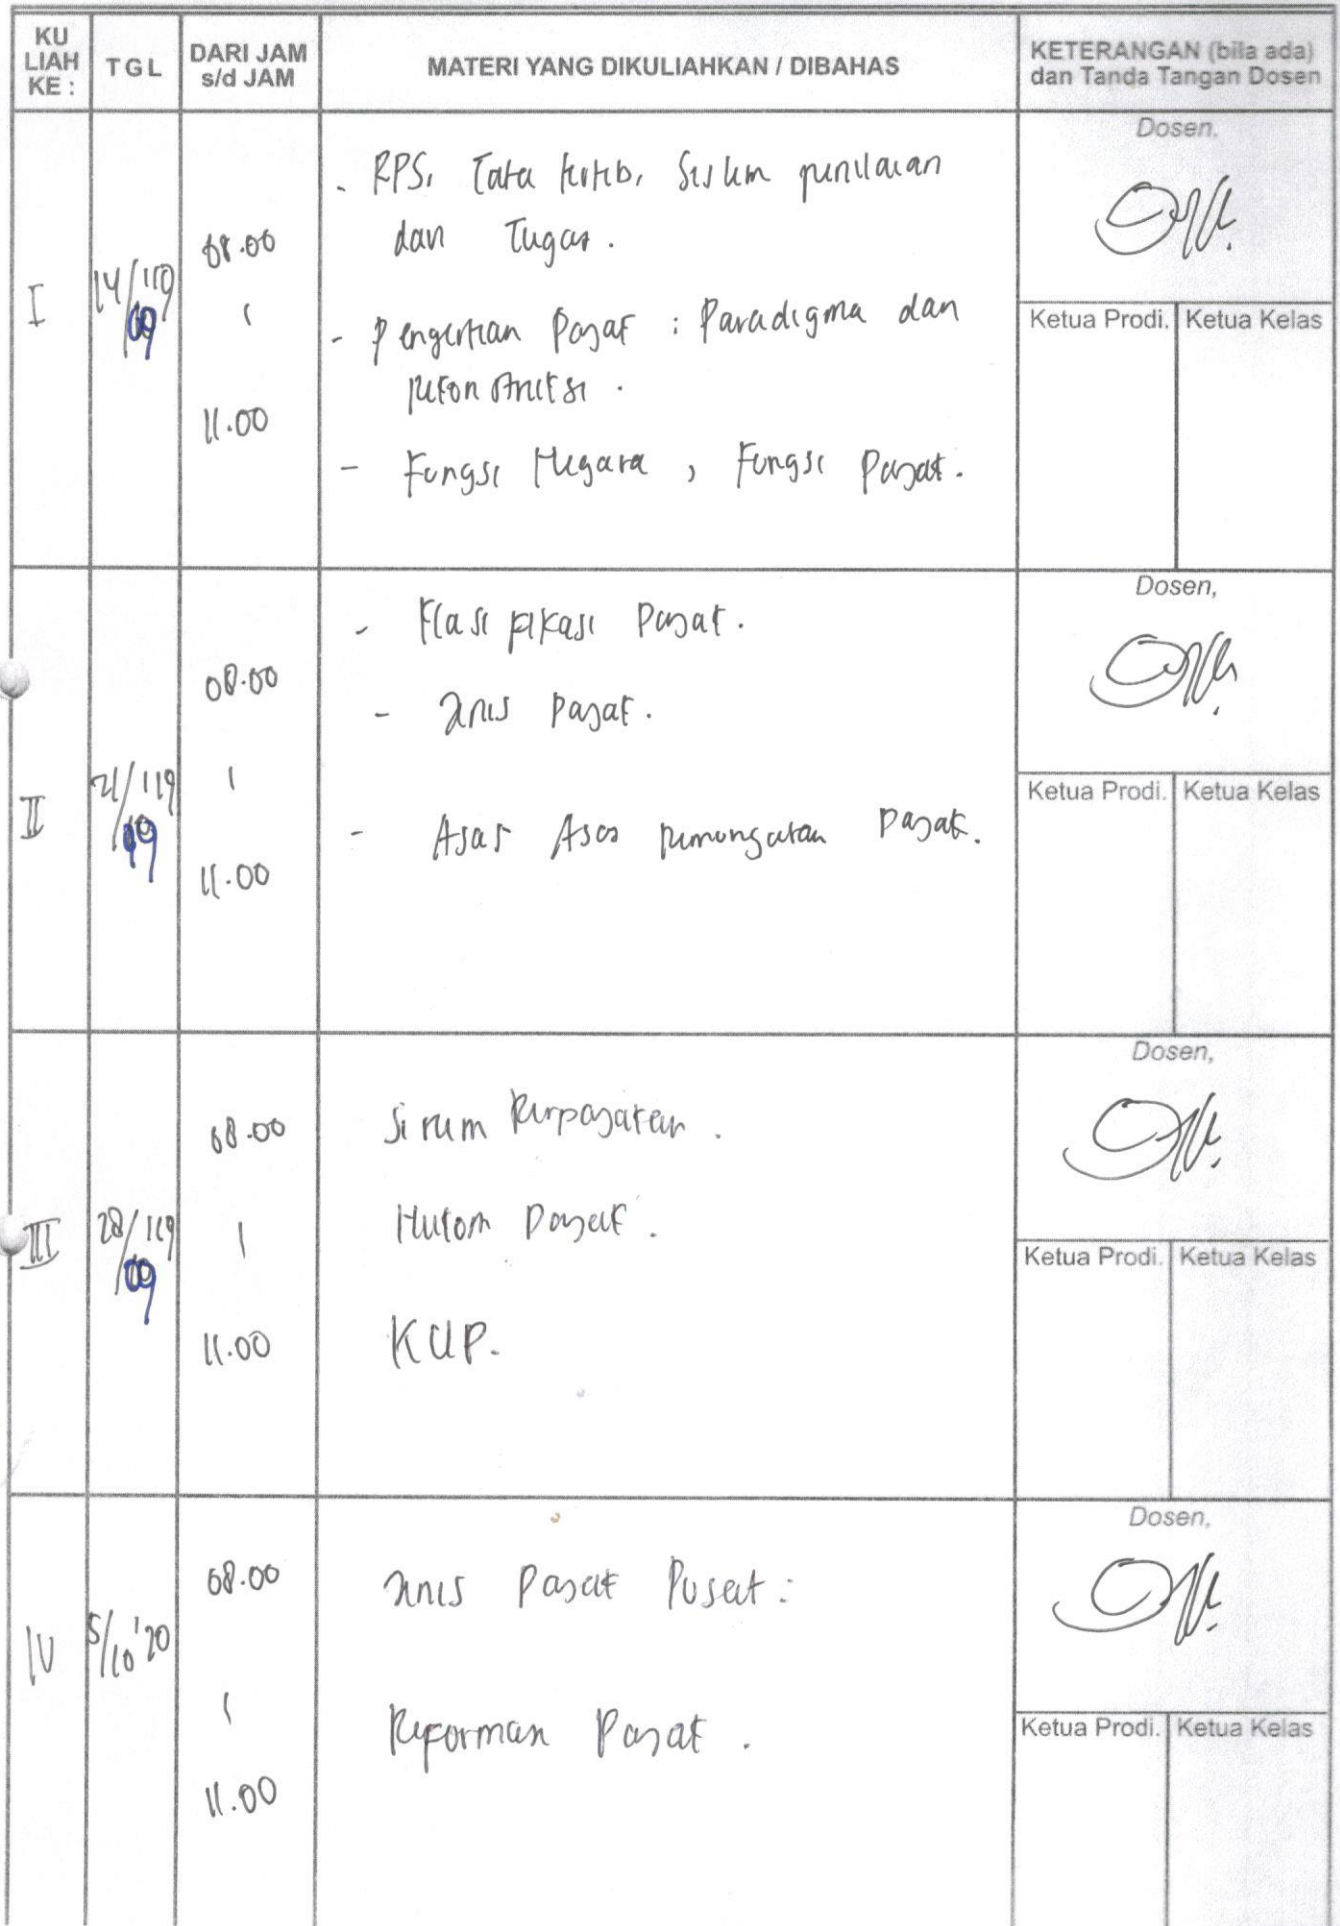 KU LIAH KE :
TGL
DARI JAM s/d JAM
MATERI YANG DIKULIAHKAN / DIBAHAS
KETERANGAN (bila ada) dan Tanda Tangan Dosen
I
08.00
11.00
- RPS, Tata tertib, Sistem penilaian
dan Tugas.
- Pengertian Pajak : Paradigma dan
- Fungsi Negara, Fungsi Pajak.
Dosen,
Ketua Prodi. Ketua Kelas
II
08.00
11.00
- Klasifikasi Pajak.
- Jenis Pajak.
- Asas Asas pemungutan Pajak.
Dosen,
Ketua Prodi. Ketua Kelas
III
08.00
11.00
Sistem Perpajakan.
Hukum Pajak.
KUP.
Dosen,
Ketua Prodi. Ketua Kelas
IV
5/10'20
08.00
11.00
Jenis Pajak Pusat :
Reformasi Pajak.
Dosen,
Ketua Prodi. Ketua Kelas